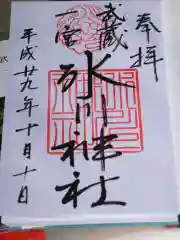 奉拝
武蔵
一宮
氷川神社
平成廿九年十月十日